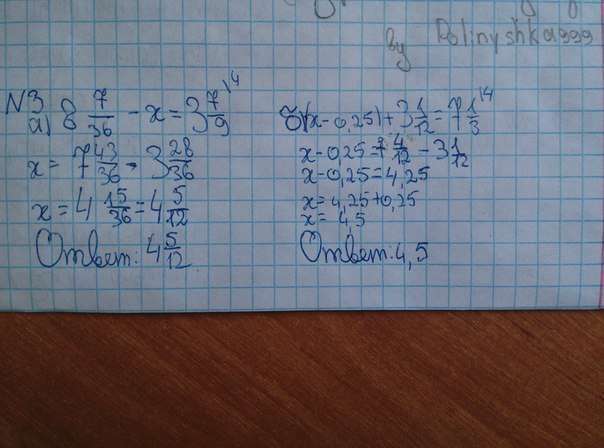 by Polinyshka999
N3
а) 8 7/36 - x = 3 7/9 \4
x = 7 43/36 - 3 28/36
x = 4 15/36 = 4 5/12
Ответ: 4 5/12
б) (x - 0,25) + 3 1/12 = 7 1/3 \4
x - 0,25 = 7 4/12 - 3 1/12
x - 0,25 = 4,25
x = 4,25 + 0,25
x = 4,5
Ответ: 4,5